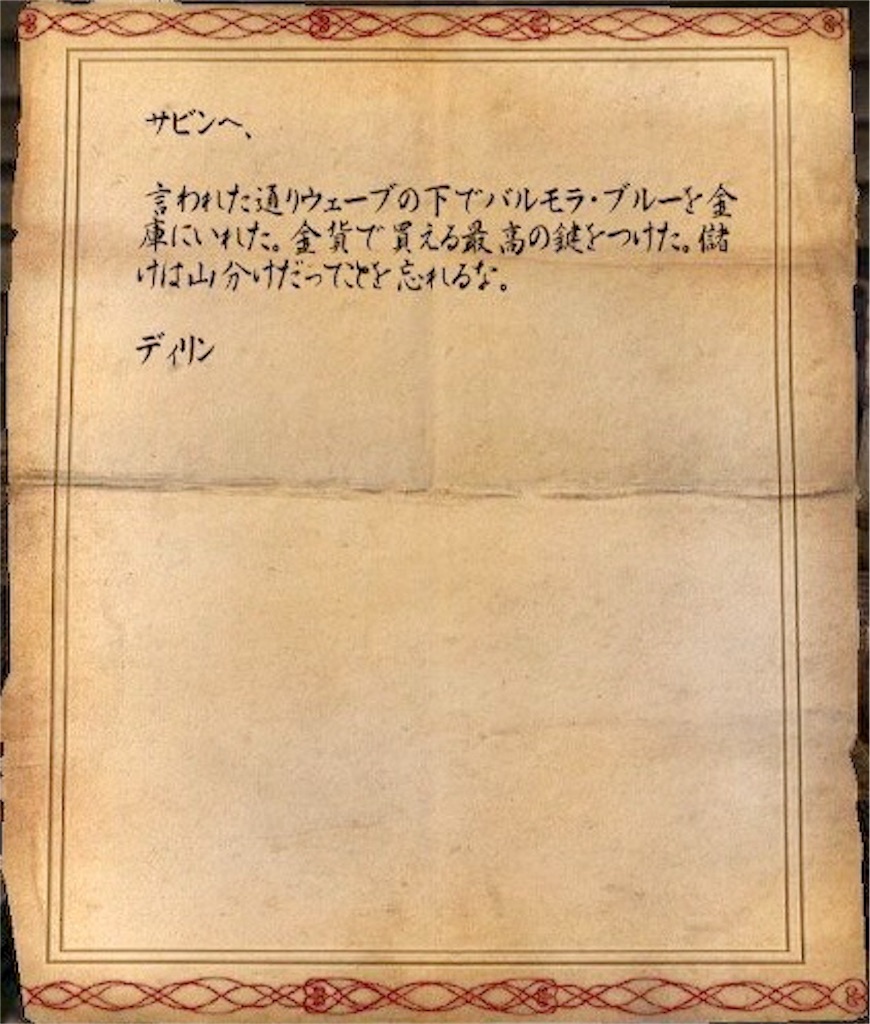 サビンへ、
言われた通りウェーブの下でバルモラ・ブルーを金
庫にいれた。金貨で買える最高の鍵をつけた。儲
けは山分けだってことを忘れるな。
ディリン